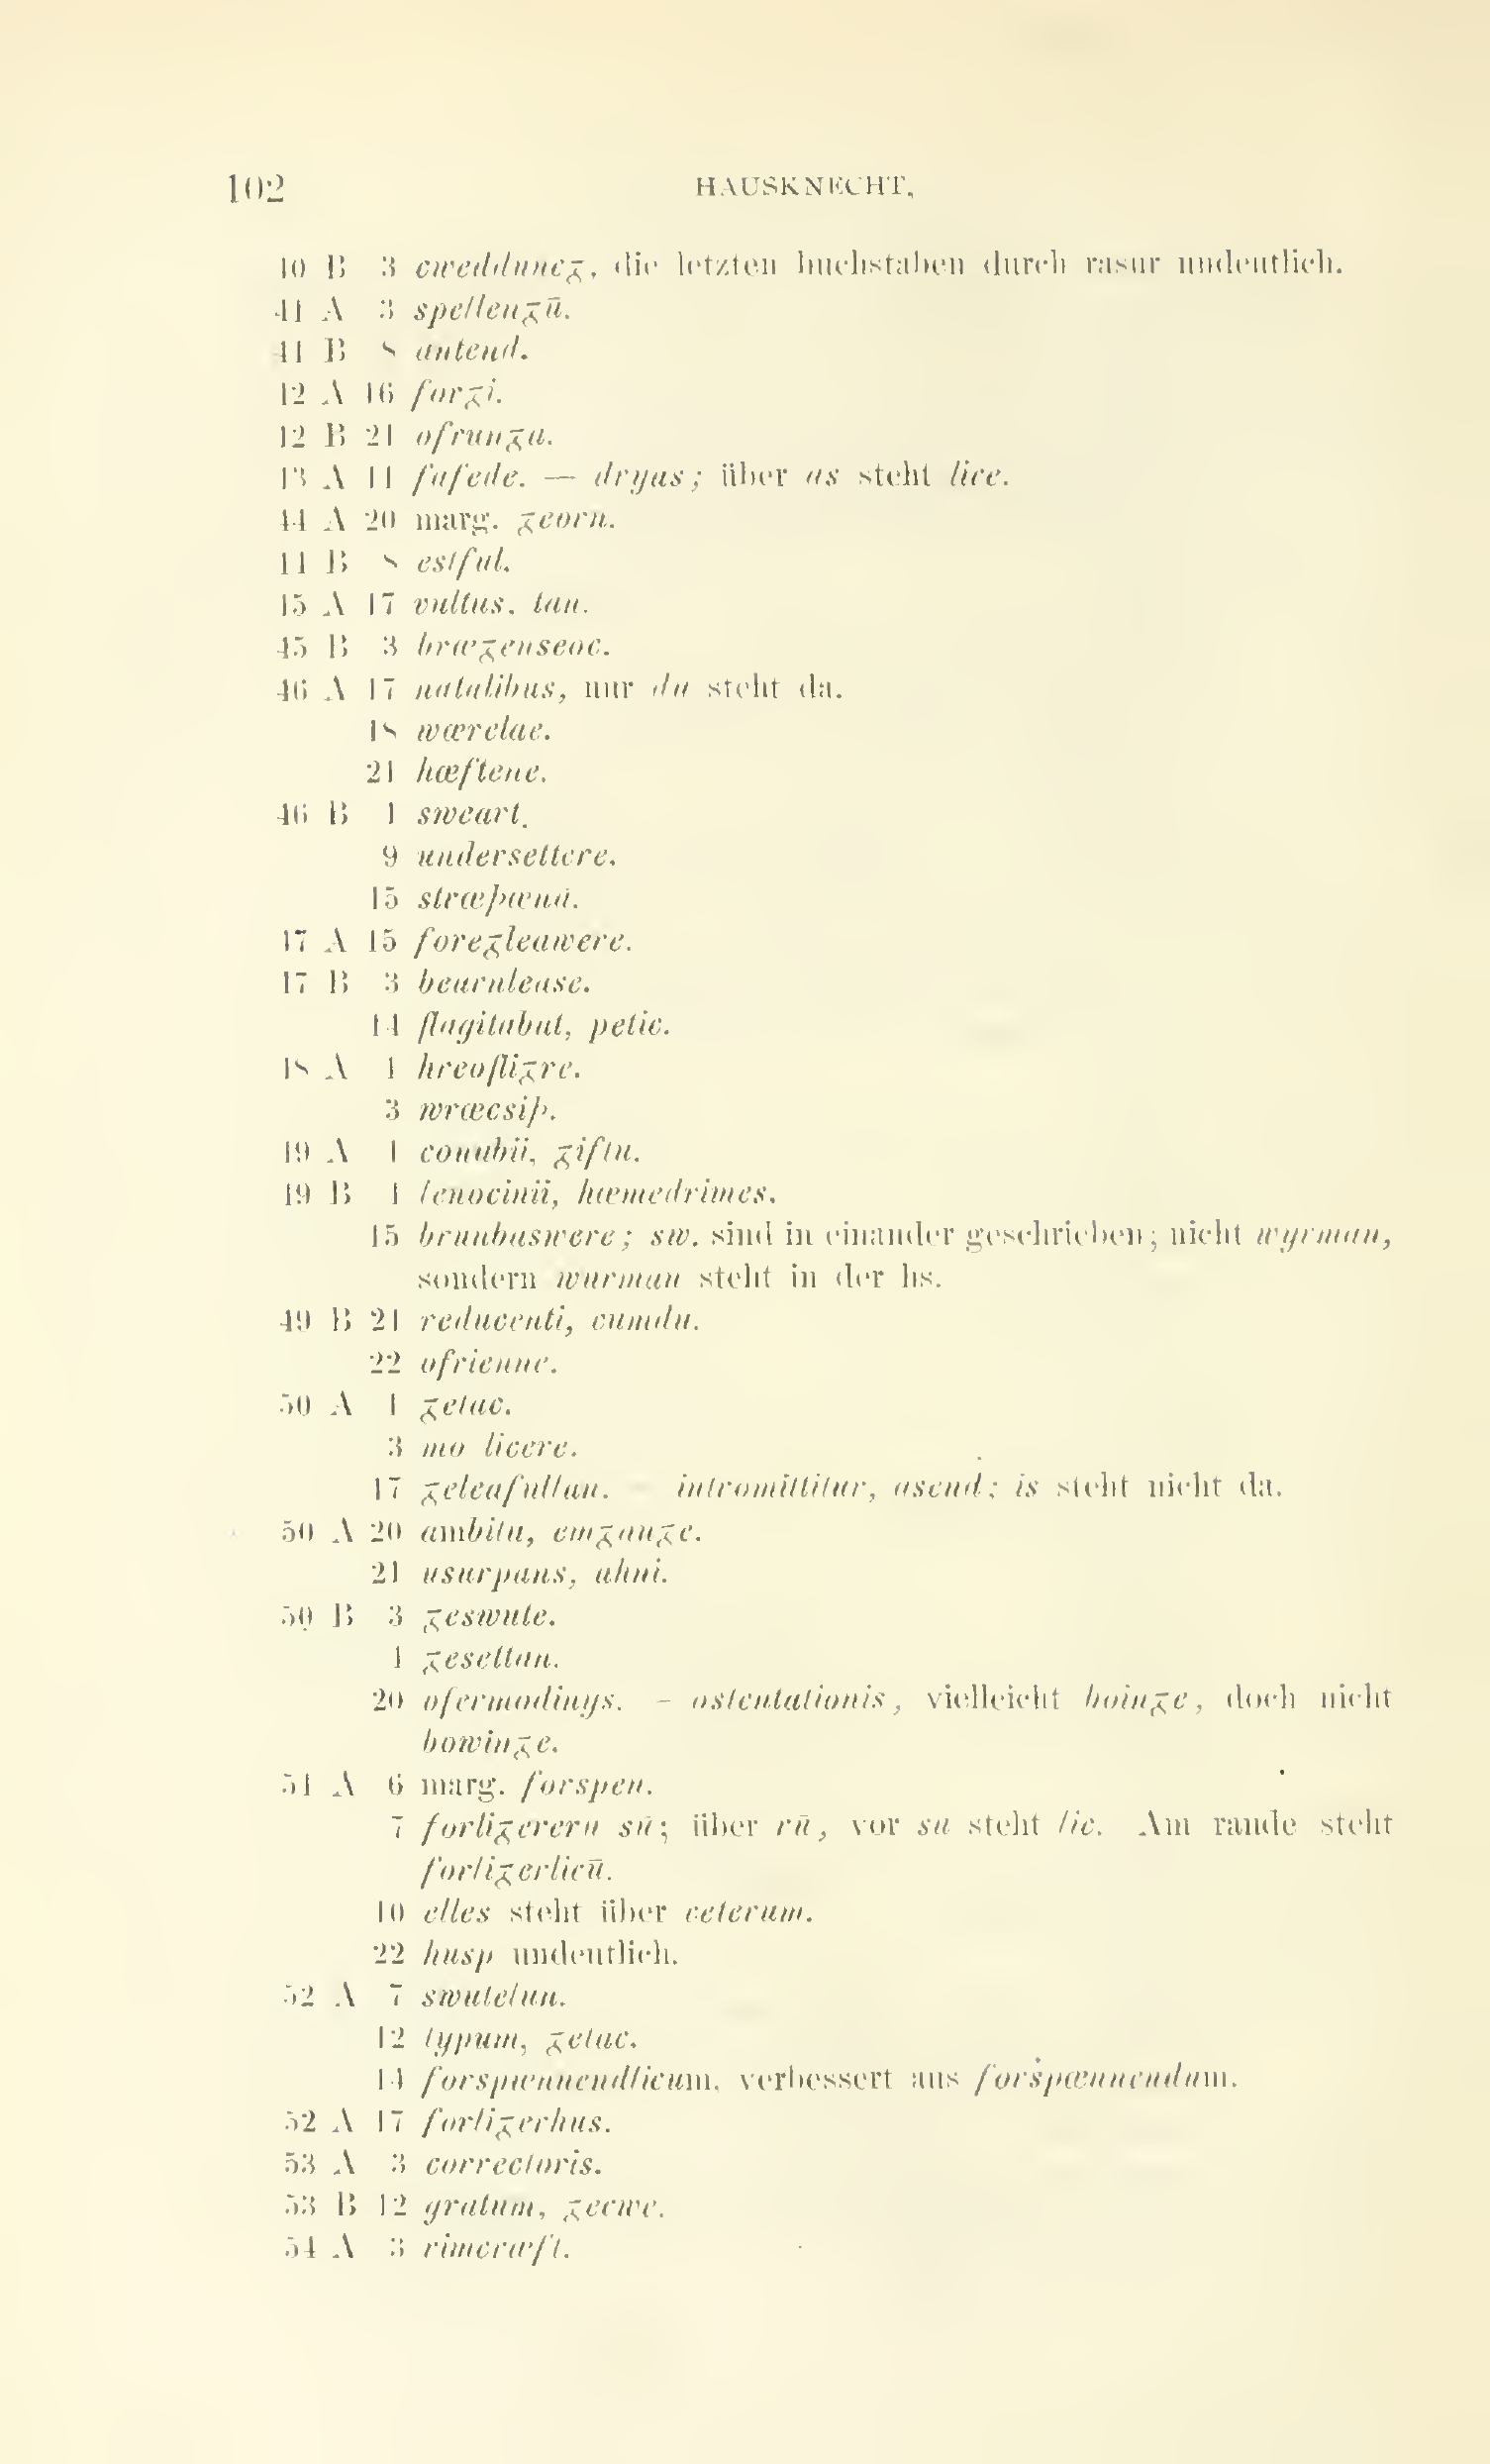 102 HAUSKNECHT,
40 B 3 cwedduncʒ, die letzten buchstaben durch rasur undeutlich.
41 A 3 spellenʒū.
41 B 8 antend.
42 A 16 forʒi.
42 B 21 ofrunʒa.
43 A 11 fafede. — dryas; über as steht lice.
44 A 20 marg. ʒeorn.
44 B 8 estful.
45 A 17 vultus, tan.
45 B 3 bræʒenseoc.
46 A 17 natalibus, nur da steht da.
18 wærelae.
21 hæftene.
46 B 1 sweart.
9 undersettere.
15 stræþæna.
47 A 15 foreʒleawere.
47 B 3 bearnlease.
14 flagitabat, petic.
48 A 1 hreofliʒre.
3 wræcsiþ.
49 A 1 conubii, ʒifta.
49 B 1 lenocinii, hæmedrimes.
15 brunbaswere; sw. sind in einander geschrieben; nicht wyrman,
sondern wurman steht in der hs.
49 B 21 reducenti, cumdu.
22 ofrienne.
50 A 1 ʒetac.
3 mo licere.
17 ʒeleafullan. intromittitur, asend; is steht nicht da.
50 A 20 ambitu, emʒanʒe.
21 usurpans, ahni.
50 B 3 ʒeswute.
4 ʒesettan.
20 ofermodinys. – ostentationis, vielleicht boinʒe, doch nicht
bowinʒe.
51 A 6 marg. forspen.
7 forliʒereru sū; über rū, vor su steht lic. Am rande steht
forliʒerlicū.
10 elles steht über ceterum.
22 husp undeutlich.
52 A 7 swutelun.
12 typum, ʒetac.
14 forspænnendlicum, verbessert aus forspænnendum.
52 A 17 forliʒerhus.
53 A 3 correctoris.
53 B 12 gratum, ʒecwe.
54 A 3 rimcræft.